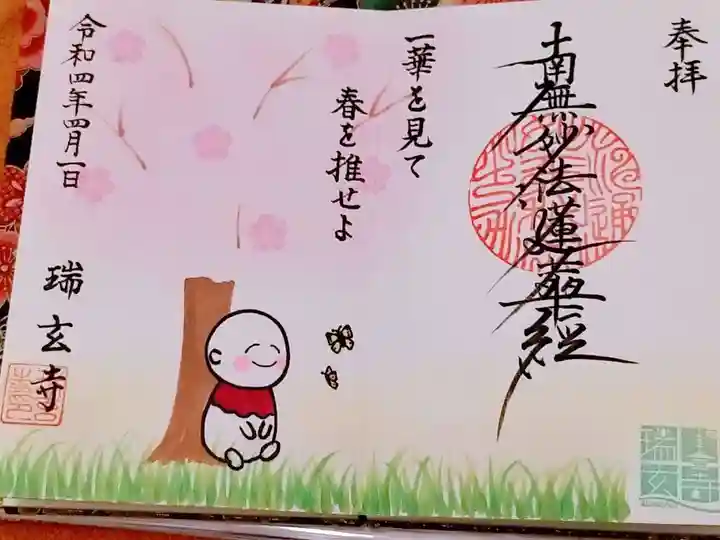 奉拝
南無妙法蓮華経
一華を見て
春を推せよ
令和四年四月一日
瑞玄寺
瑞玄寺